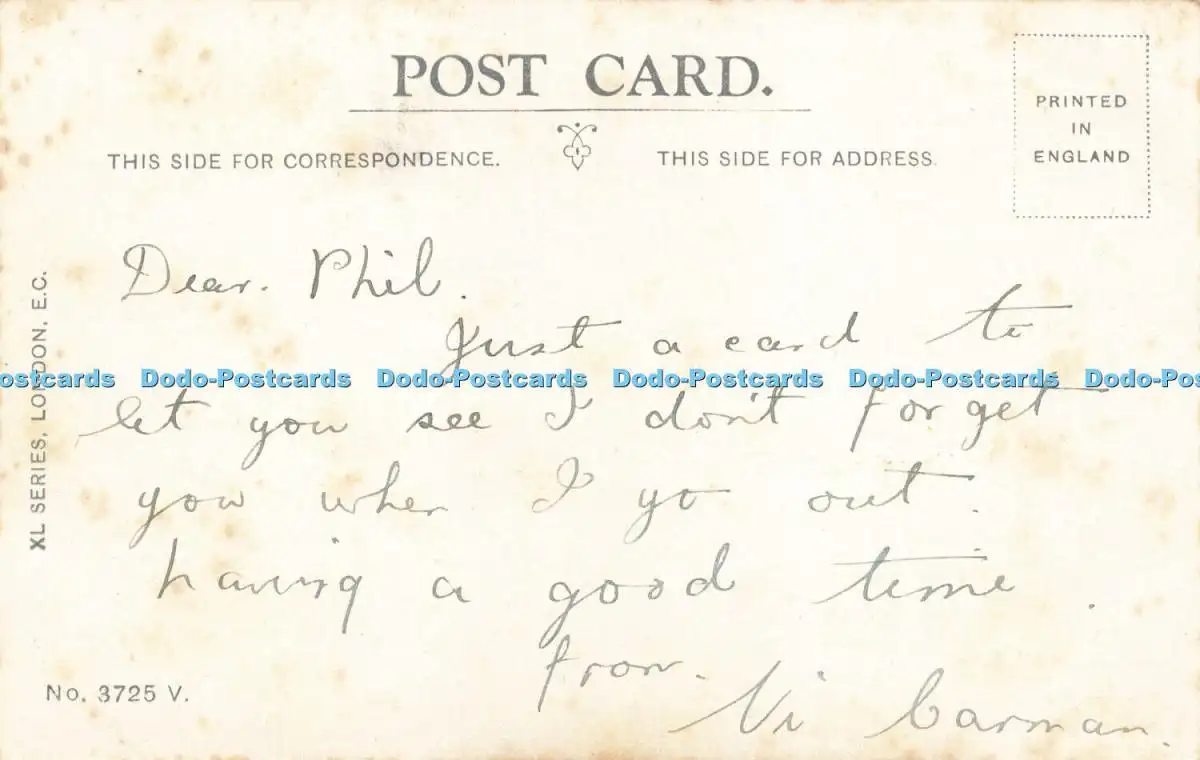 POST CARD.
THIS SIDE FOR CORRESPONDENCE.
THIS SIDE FOR ADDRESS.
PRINTED
IN
ENGLAND
XL SERIES, LONDON, E.C.
Dear. Phil.
Just a card to
Dodo-Postcards Dodo-Postcards Dodo-Postcards Dodo-Postcards
let you see I don't forget
you when I go out.
having a good time.
from.
Vi Carman.
No. 3725 V.